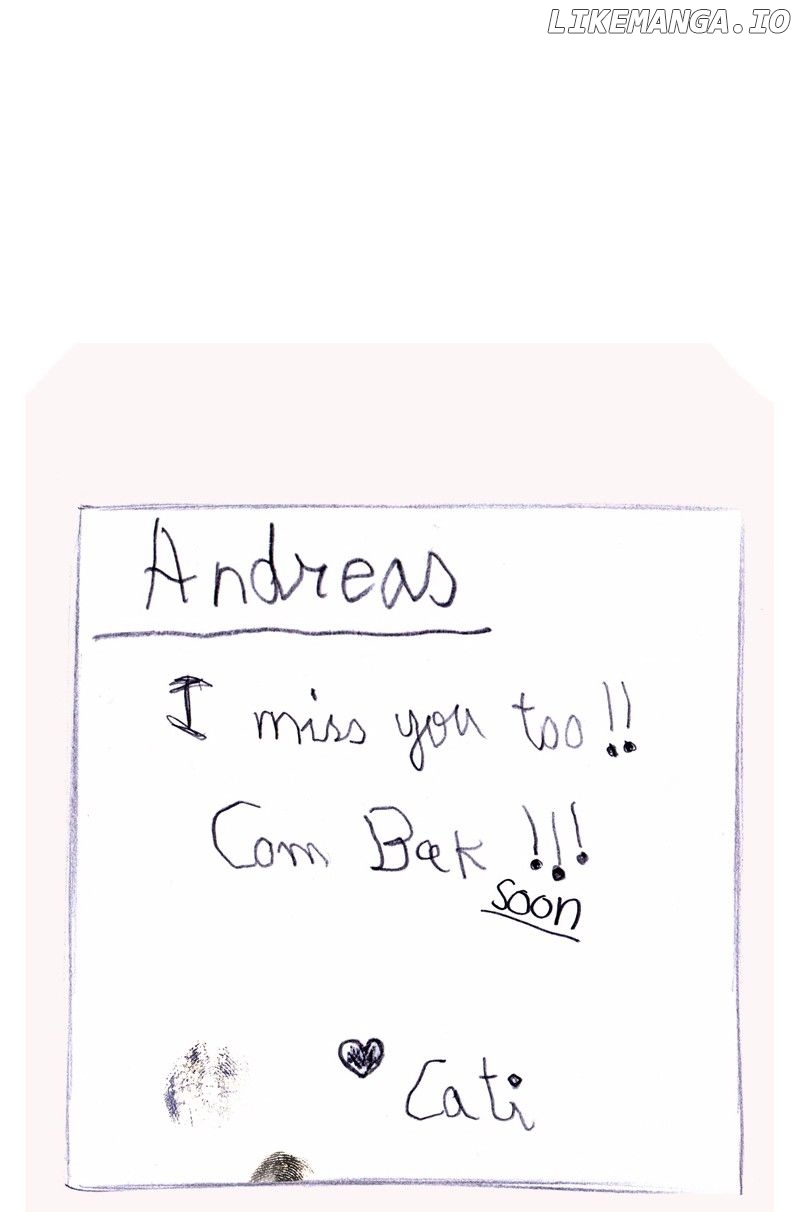 LIKEMANGA.IO
Andreas
I miss you too!!
Com Bak !!!
soon
Cati